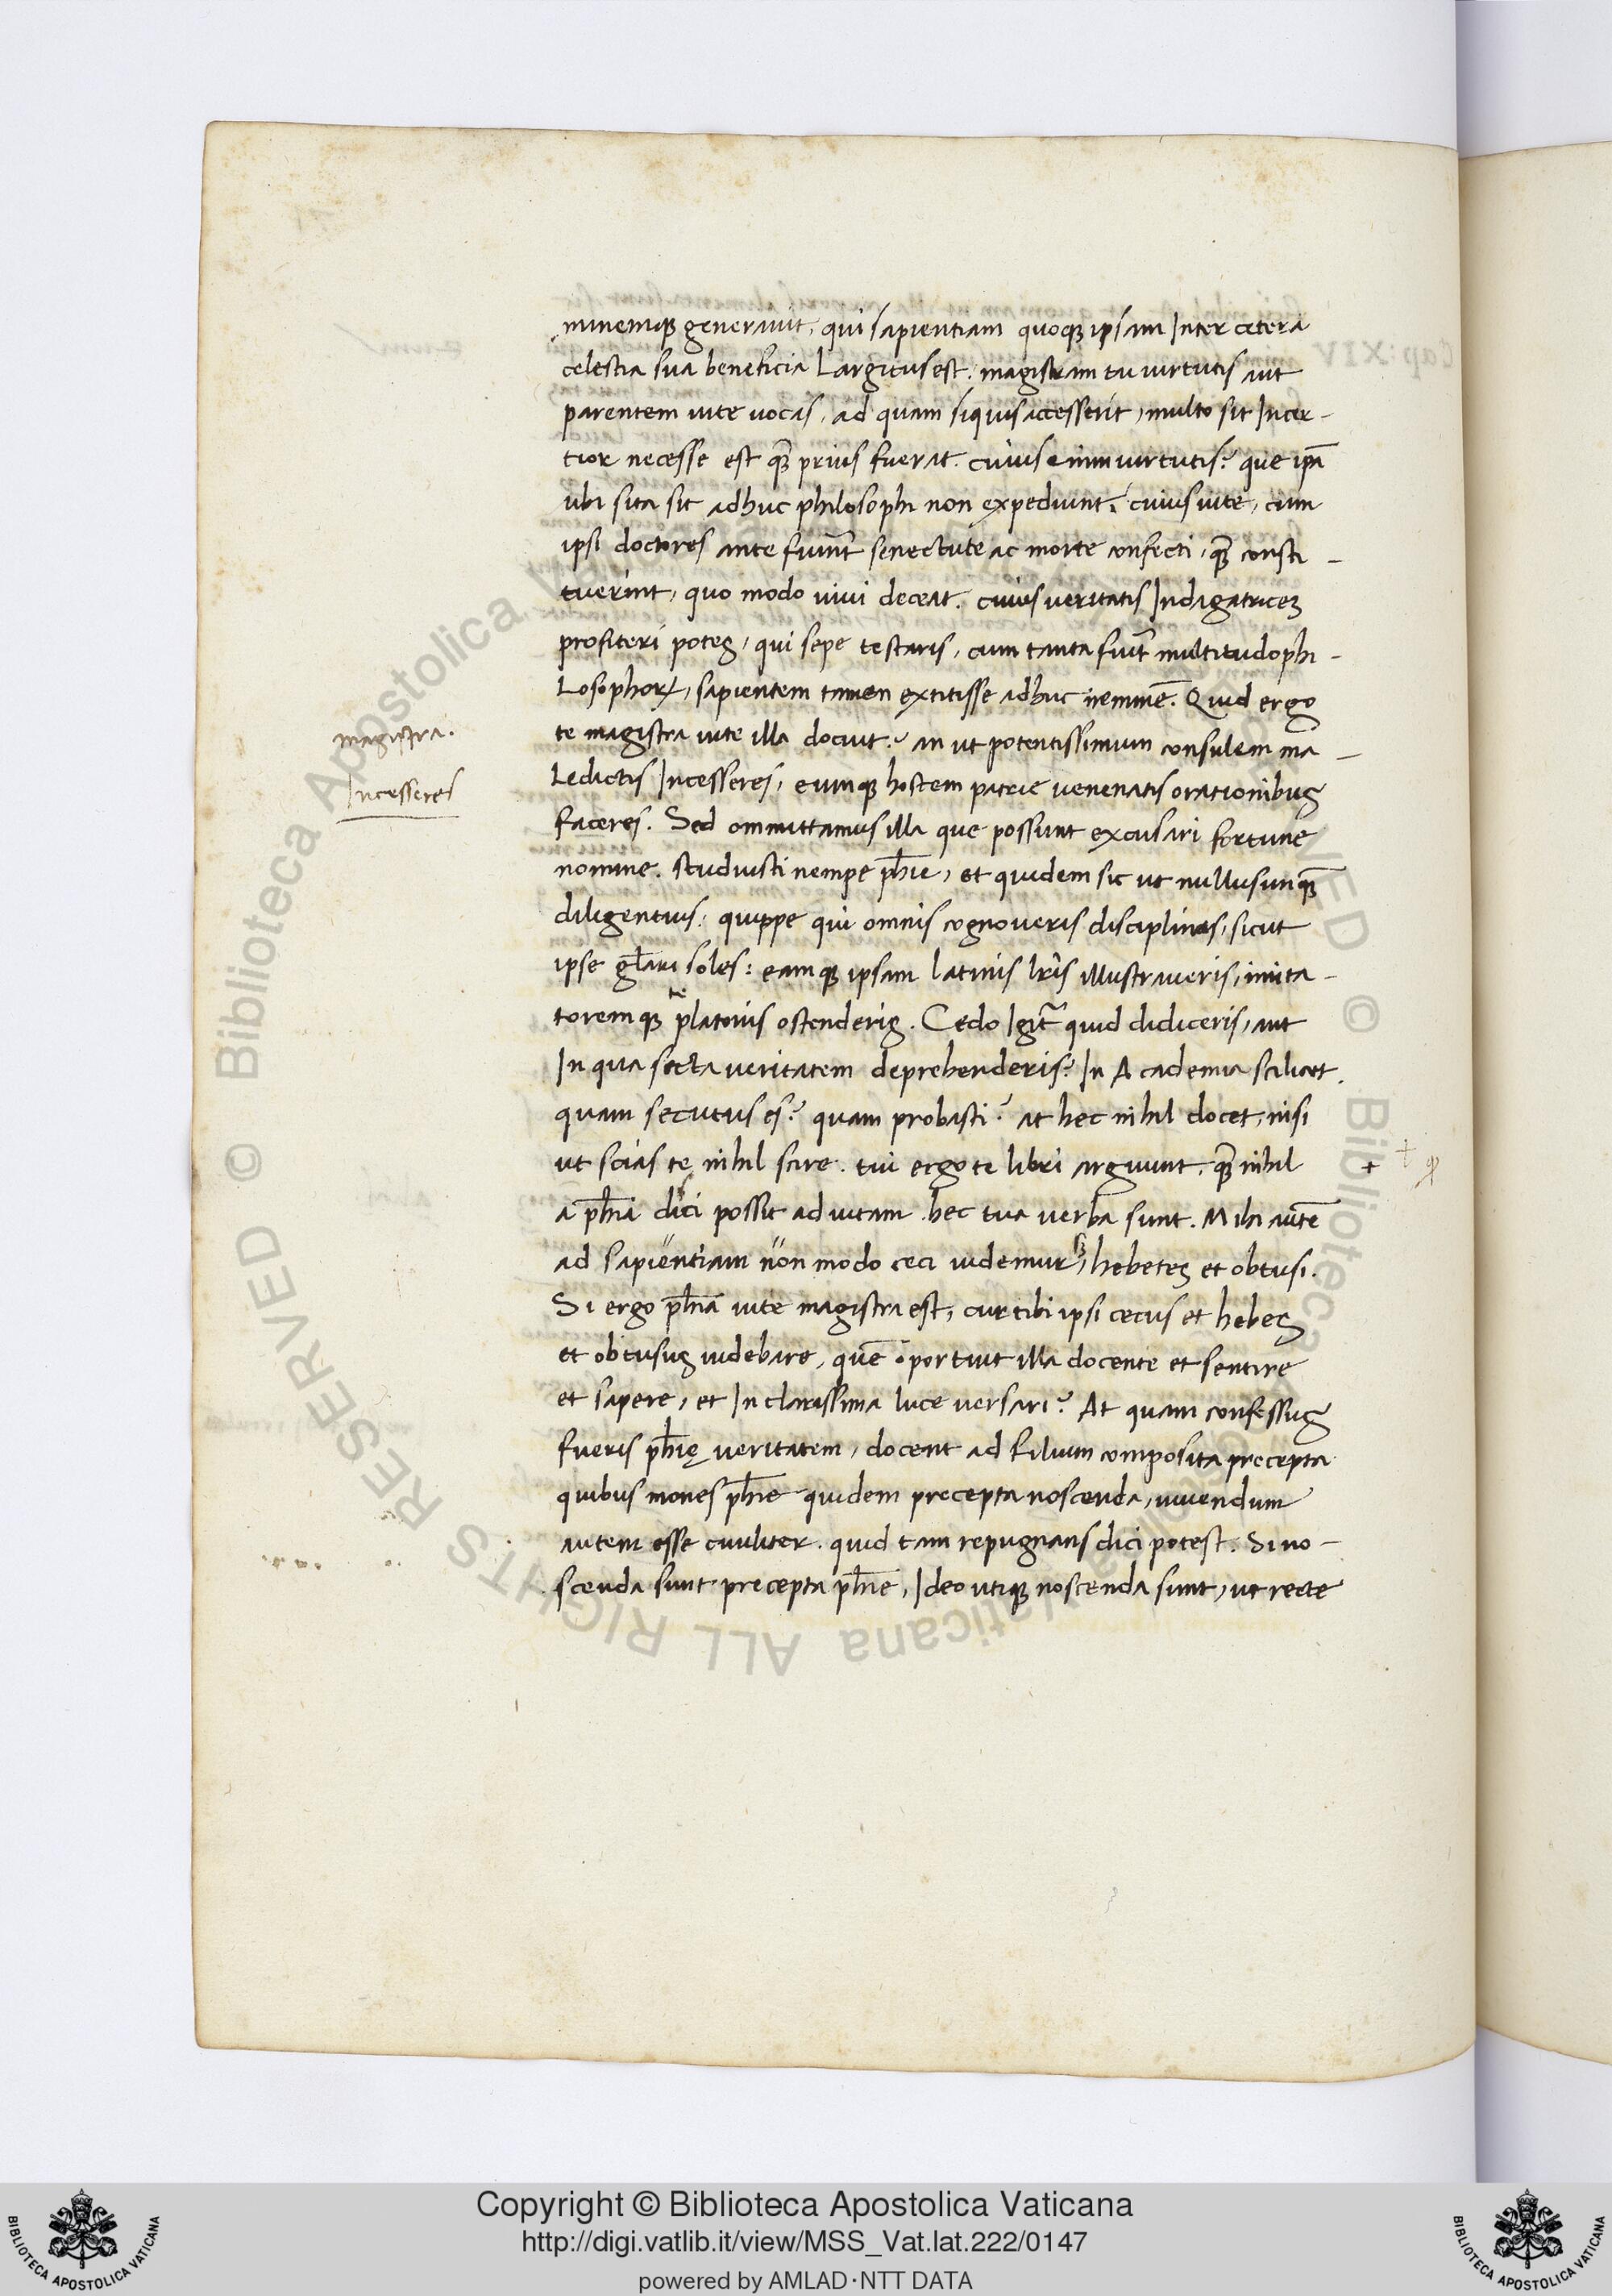 minemq̃ generauit, qui sapientiam quoq̃ ipsam Inter cetera
celestia sua beneficia Largitus est. magistram tu uirtutis aut
parentem uite uocas, ad quam siquis accesserit, multo sit Incer-
tior necesse est q̃ prius fuerat. cuius enim uirtutis? que ip̃a
ubi sita sit adhuc philosophi non expediunt. cuius uite, cum
ipsi doctores ante fiunt̃ senectute ac morte confecti, q̃ consti-
tuerint, quo modo uiui deceat. cuius ueritatis Indagatricem
profiteri potes, qui sepe testaris, cum tanta fuit̃ multitudo phi-
Losophoꝝ, sapientem tamen extitisse adhuc neminẽ. Quid ergo
te magistra uite illa docuit? an ut potentissimum consulem ma-
Ledictis Incesseres, eumq̃ hostem patrie uenenatis orationibus
faceres. Sed ommittamus illa que possunt excusari fortune
nomine. studuisti nempe phĩe, et quidem sic ut nullus unq̃
diligentius, quippe qui omnis cognoueris disciplinas, sicut
ipse gl̃ari soles: eamq̃ ipsam latinis lr̃is illustraueris, imita-
toremq̃ te platonis ostenderis. Cedo Igit̃ quid didiceris, aut
In qua secta ueritatem deprehenderis? In Academia scilicet,
quam secutus es? quam probasti? at hec nihil docet, nisi
ut scias te nihil scire. tui ergo te libri arguunt, q̃ nihil
a phĩa disci possit ad uitam. hec tua uerba sunt. Mihi autẽ
ad sapientiam non modo ceci uidemur, sꝫ hebetes et obtusi.
Si ergo phĩa uite magistra est, cur tibi ipsi cecus et hebes
et obtusus uidebare, quẽ oportuit illa docente et sentire
et sapere, et In clarissima luce uersari? At quam confessus
fueris phĩę ueritatem, docent ad filium composita precepta
quibus mones phĩe quidem precepta noscenda, uiuendum
autem esse ciuiliter. quid tam repugnans dici potest. Si no-
scenda sunt precepta phĩe, Ideo utiq̃ noscenda sunt, ut recte
magistra.
Incesseres
Copyright © Biblioteca Apostolica Vaticana
http://digi.vatlib.it/view/MSS_Vat.lat.222/0147
powered by AMLAD·NTT DATA
BIBLIOTECA APOSTOLICA VATICANA
BIBLIOTECA APOSTOLICA VATICANA
© Biblioteca Apostolica Vaticana ALL RIGHTS RESERVED